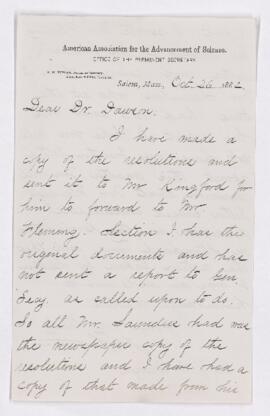 American Association for the Advancement of Science.
OFFICE OF THE PERMANENT SECRETARY
Salem, Mass, Oct. 26 1882
Dear Dr. Dawson.
I have made a
copy of the resolutions and
sent it to Mr Kingsford for
him to forward to Mr
Fleming. Section I has the
original documents and has
not sent a report to Gen
Secy. as called upon to do.
So all Mr. Saunders had was
the newspaper copy of the
resolutions and I have had a
copy of that made from his